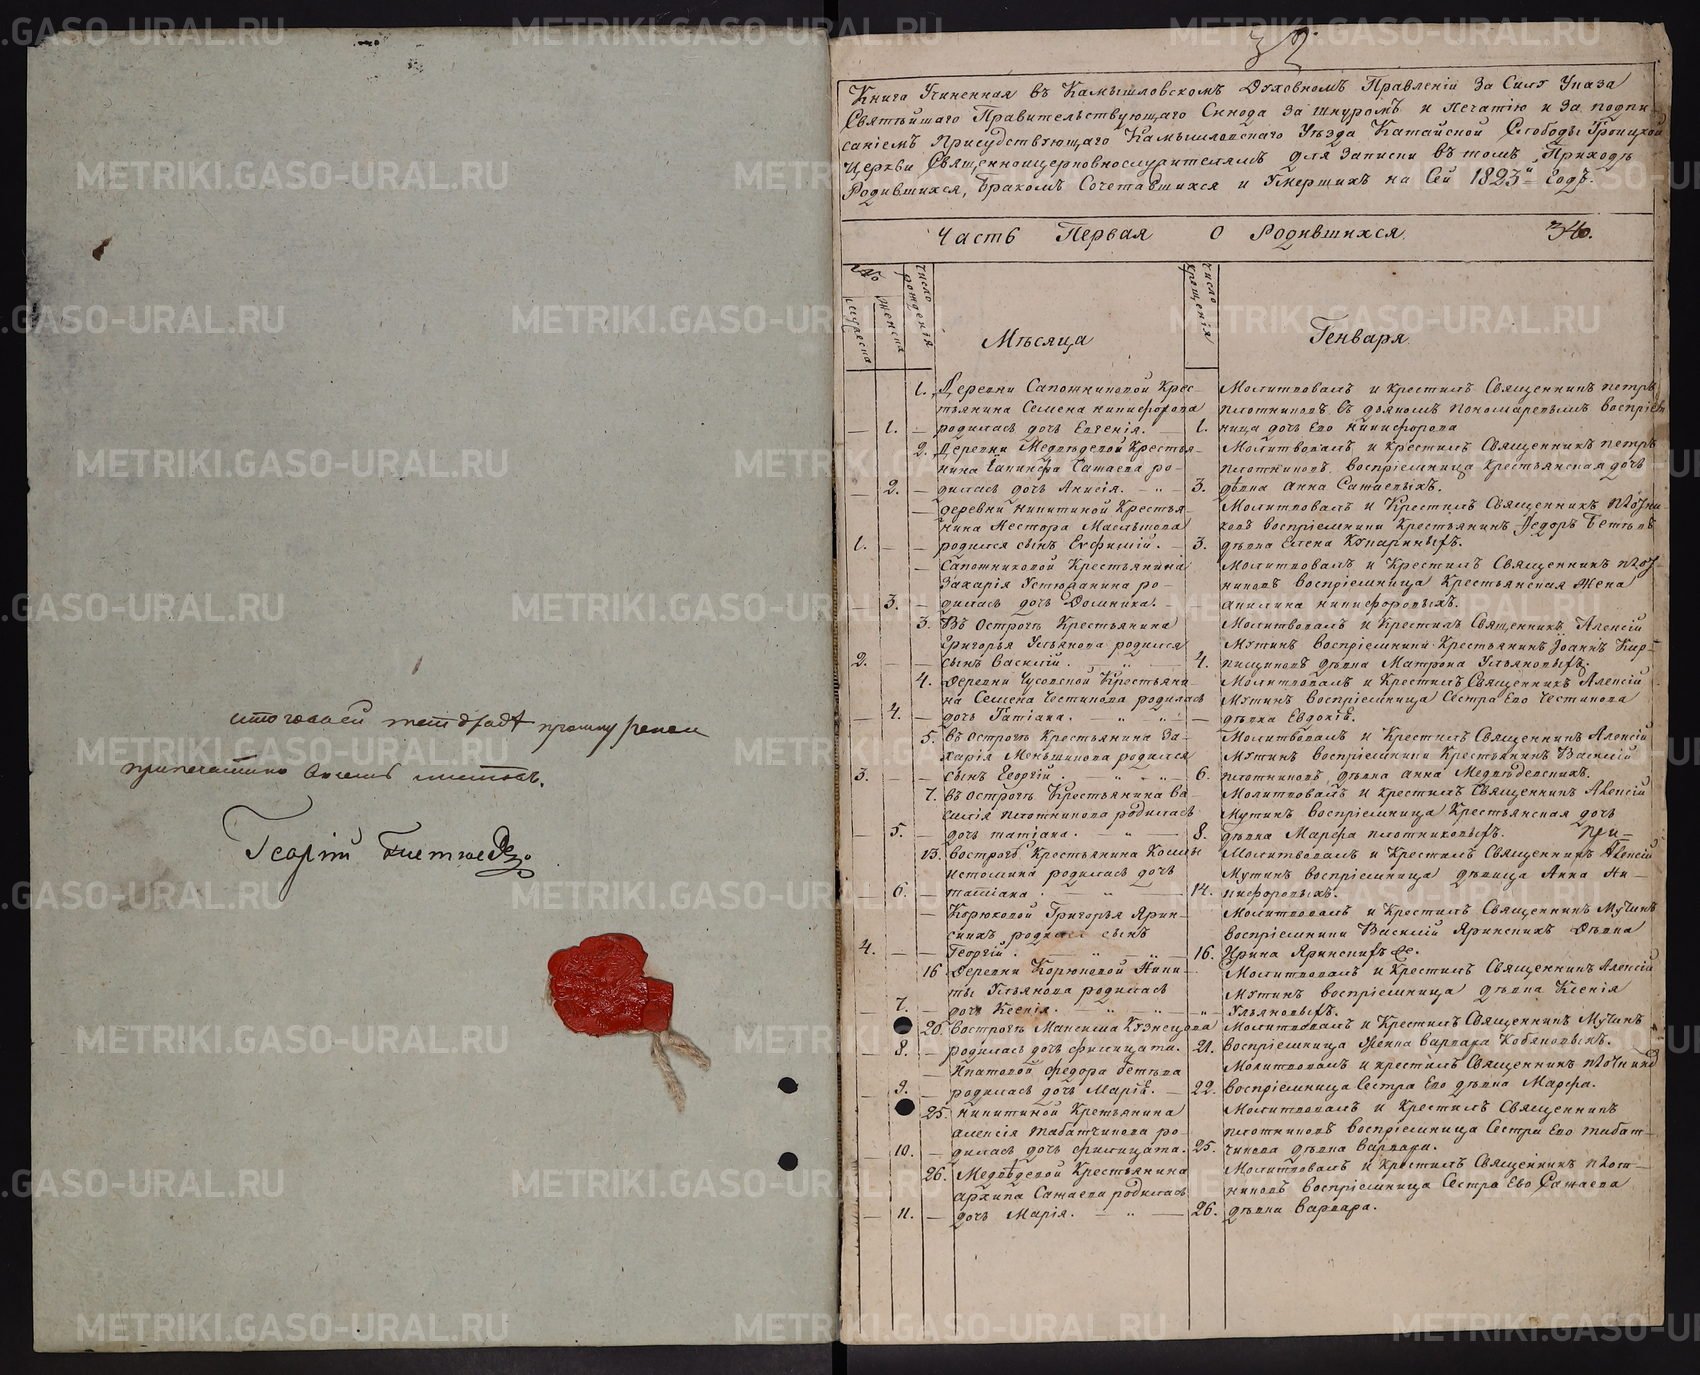 печатию листовъ.
Георгій
Книга Учиненная въ Камышловскомъ Духовномъ Правленіи За Силу Указа
Святѣйшаго Правительствующаго Синода За шнуромъ и печатію и За подпи-
саніемъ Присудствующаго Камышловскаго Уѣзда Катайской Слободы Троицкой
Церкви Священноцерковнослужителямъ для Записки въ томъ Приходѣ
Родившихся, Бракомъ Сочетавшихся и Умершихъ на Сей 1823й Годъ.
Часть Первая О Родившихся
№
мужеска
женска
число рожденія
Мѣсяца
число крещенія
Генваря
1. Деревни Сапожниковой Крес-
тьянина Семена Никифорова
— 1. — родилась дочь Евгенія. — 1.
Молитвовалъ и крестилъ Священникъ петръ
плотниковъ Съ дьякомъ Пономаревымъ воспріем
ница дочь Ево Никифорова
2. Деревни Медвѣдевой Крестья-
нина Сатаева ро-
— 2. — дилась дочь Анисія. — 3.
Молитвовалъ и крестилъ Священникъ петръ
плотниковъ воспріемница крестьянская дочь
дѣвка Анна Сатаевыхъ.
— деревни Никитиной Крестья-
нина Нестора
1. — — родился сынъ Евфимій. — 3.
Молитвовалъ и Крестилъ Священникъ плотни-
ковъ воспріемники Крестьянинъ Федоръ
дѣвка Елена
— Сапожниковой Крестьянина
Захарія Устюжанина ро-
— 3. — дилась дочь Домника. —
Молитвовалъ и Крестилъ Священникъ плот-
никовъ Воспріемница Крестьянская Жена
Акилина Никифоровыхъ.
3. Въ Острогѣ Крестьянина
Григорья Ульянова родился
2. — — сынъ Василій. — 4.
Молитвовалъ и Крестилъ Священникъ Алексій
Мутинъ Воспріемники Крестьянинъ Іоаннъ Кир-
пищиковъ дѣвка Матрона Ульяновыхъ.
4. Деревни Чусовской Крестьяни-
на Семена Честикова родилась
— 4. — дочь Татіана. —
Молитвовалъ и Крестилъ Священникъ Алексій
Мутинъ Воспріемница Сестра Ево Честикова
дѣвка Евдокія.
5. въ Острогѣ Крестьянина За-
харія Меньшикова родился
3. — — сынъ Георгій. — 6.
Молитвовалъ и Крестилъ Священникъ Алексій
Мутинъ Воспріемники Крестьянинъ Василій
плотниковъ, дѣвка Анна Медвѣдевскихъ.
7. въ Острогѣ Крестьянина Ва-
силія плотникова родилась
— 5. — дочь татіана. — 8.
Молитвовалъ и крестилъ Священникъ Алексій
Мутинъ Воспріемница Крестьянская дочь
дѣвка Марфа плотниковыхъ.
13. Вострогѣ Крестьянина Космы
Истомина родилась дочь
— 6. — татіана. — 14.
Молитвовалъ и Крестилъ Священникъ Алексій
Мутинъ воспріемница дѣвица Анна Ни-
кифоровыхъ.
— Корюковой Григорья Ярин-
скихъ родился сынъ
4. — — Георгій. — 16.
Молитвовалъ и Крестилъ Священникъ Мутинъ
воспріемники Василій Яринскихъ Дѣвка
Ирина Яринскихъ же.
16 Деревни Корюковой Ники-
ты Ульянова родилась
7. — дочь Ксенія.
Молитвовалъ и Крестилъ Священникъ Алексій
Мутинъ воспріемница дѣвка Ксенія
Ульяновыхъ.
20. Вострогѣ Максима Кузнецова
— 8. — родилась дочь филицата. 21.
Молитвовалъ и Крестилъ Священникъ Мутинъ
воспріемница Варвара
— Ипатовой Федора
— 9. — родилась дочь Марія. — 22.
Молитвовалъ и крестилъ Священникъ
воспріемница Сестра Ево дѣвка Марфа.
25. Никитиной Крестьянина
Алексія Табатчикова ро-
— 10. — дилась дочь филицата. 25.
Молитвовалъ и Крестилъ Священникъ
плотниковъ воспріемница Сестра Ево Табат-
чикова дѣвка Варвара.
26. Медвѣдевой Крестьянина
Архипа Сатаева родилась
— 11. — дочь Марія. — 26.
Молитвовалъ и крестилъ Священникъ плот-
никовъ воспріемница Сестра Ево Сатаева
дѣвка Варвара.
METRIKI.GASO-URAL.RU